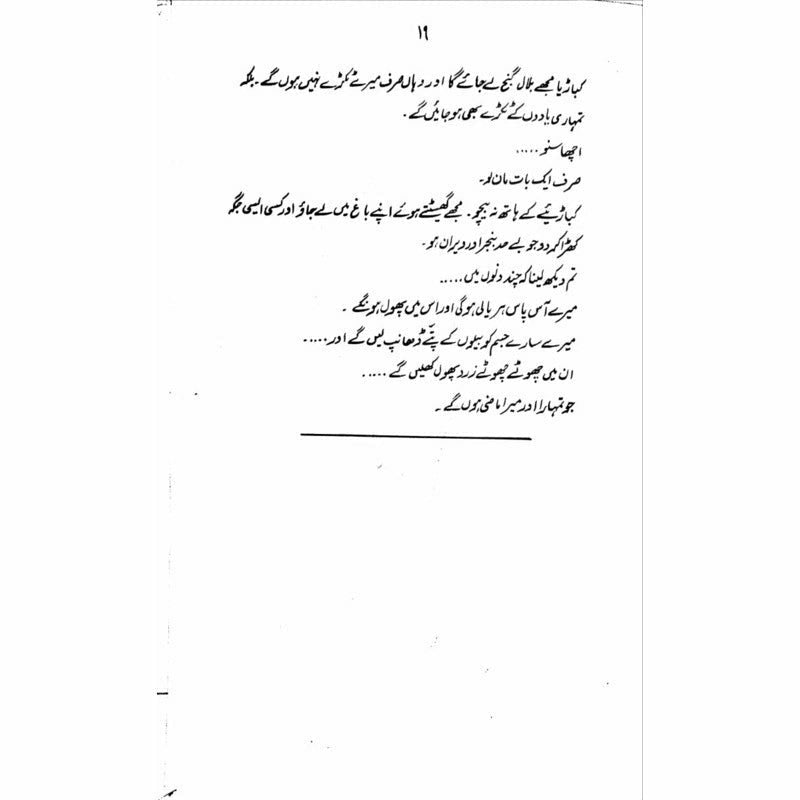 ۱۹
کباڑیا مجھے بلال گنج لے جائے گا اور وہاں صرف میرے ٹکڑے نہیں ہوں گے۔ بلکہ
تمہاری یادوں کے ٹکڑے بھی ہو جائیں گے۔
اچھا سنو .....
صرف ایک بات مان لو۔
کباڑئیے کے ہاتھ نہ بیچو۔ مجھے گھسیٹتے ہوئے اپنے باغ میں لے جاؤ اور کسی ایسی جگہ
کھڑا کر دو جو بے حد بنجر اور ویران ہو۔
تم دیکھ لینا کہ چند دنوں میں .....
میرے آس پاس ہریالی ہو گی اور اس میں پھول ہونگے ۔
میرے سارے جسم کو بیلوں کے پتّے ڈھانپ لیں گے اور .....
ان میں چھوٹے چھوٹے زرد پھول کھلیں گے .....
جو تمہارا اور میرا ماضی ہوں گے ۔